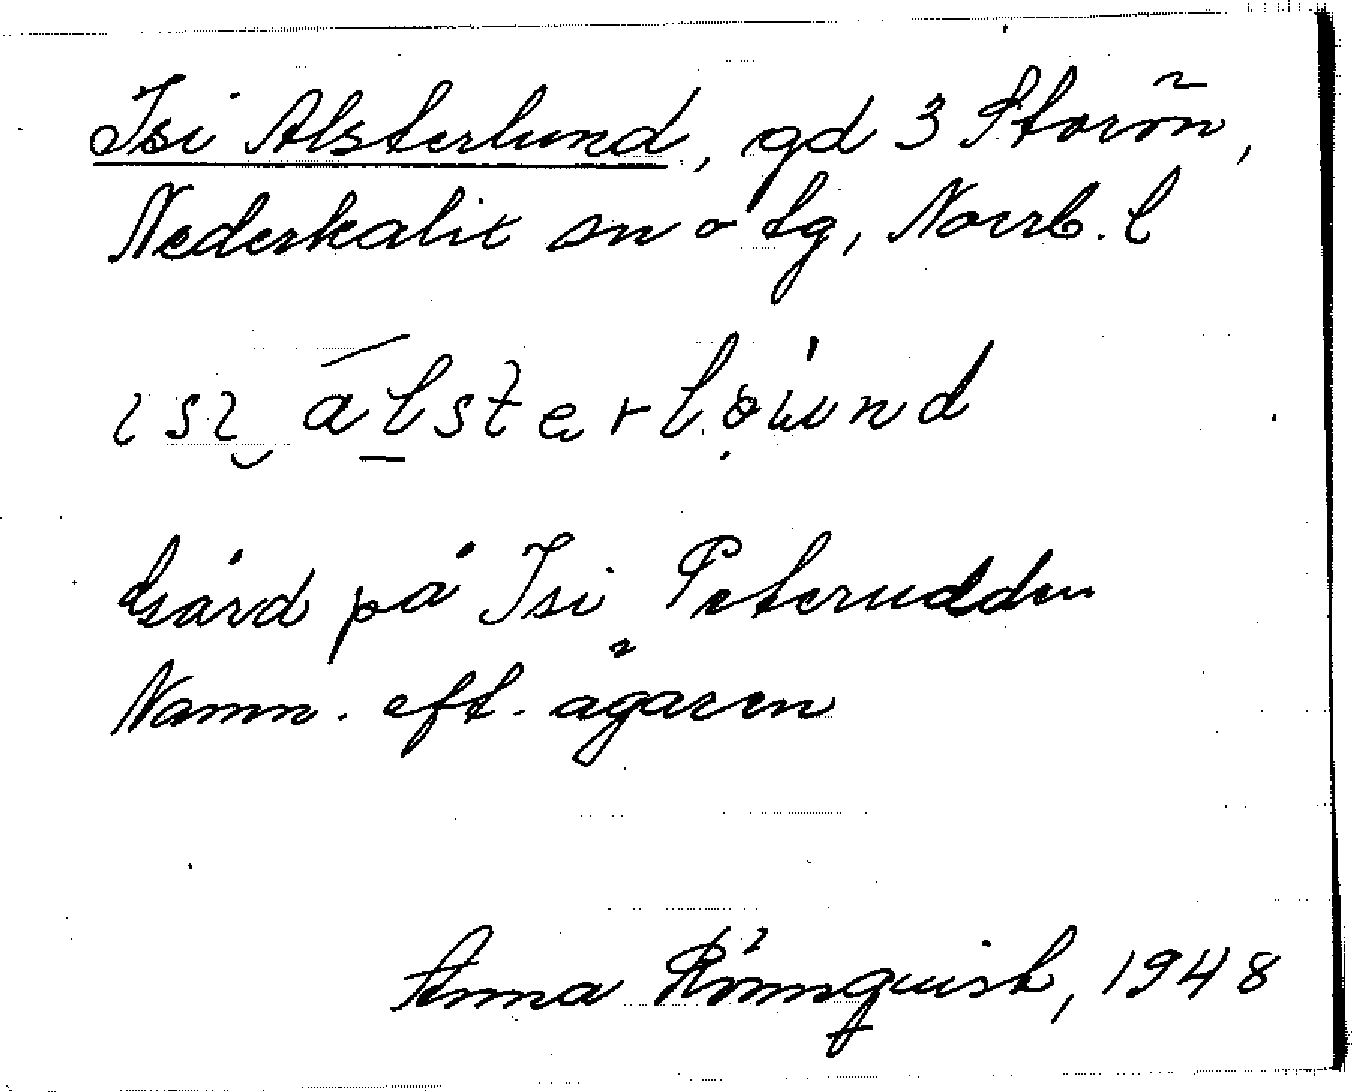 Isi Alsterlund, gd 3 Storön,
Nederkalix sn o tg, Norrb. l
Gård på Isi Peterudden
Namn. eft. ägaren
Anna Rönnquist, 1948